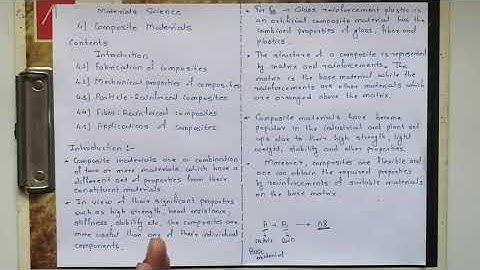 Materials Science
4) Composite Materials
Contents
Introduction
4.1) Fabrication of composites
4.2) Mechanical properties of composites
4.3) Particle-Reinforced composites
4.4) Fibre-Reinforced composites
4.5) Applications of composites
Introduction :-
• Composite materials are a combination
of two or more materials which have
a different set of properties from their
constituent materials.
• In view of their significant properties
such as high strength, heat resistance,
stiffness, stability etc, the composites are
more useful than any of their individual
components.
• For → Glass reinforcement plastic is
an artificial composite material has the
combined properties of glass, fiber and
plastics.
• The structure of a composite is represented
by matrix and reinforcements. The
matrix is the base material while the
reinforcements are other materials which
are arranged above the matrix.
• Composite materials have become
popular in the industrial and plant set
ups due to their high strength, light
weight, stability and other properties.
• Moreover, composites are flexible and
one can obtain the required properties
by reinforcements of suitable materials
on the base matrix.
A + B → AB
matrix
Base
material